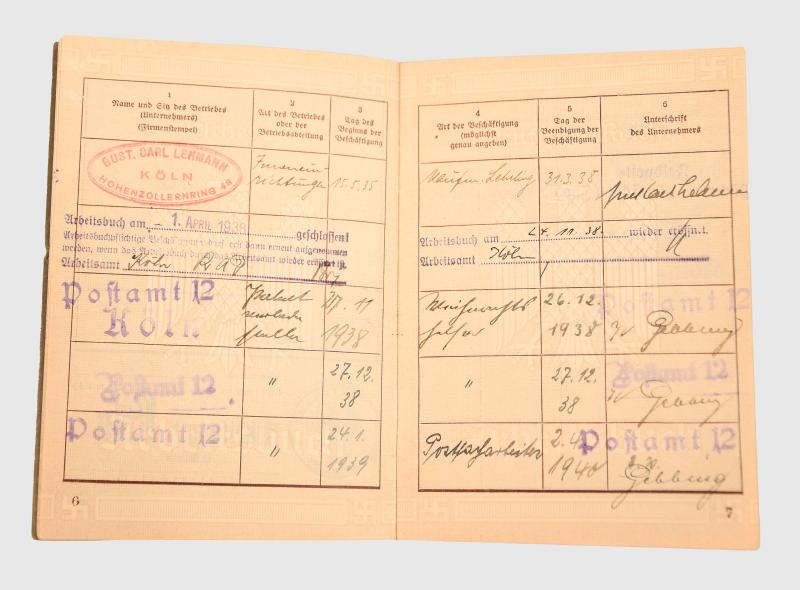 1
Name und Sitz des Betriebes
(Unternehmers)
(Firmenstempel)
2
Art des Betriebes
oder der
Betriebsabteilung
3
Tag des
Beginns der
Beschäftigung
GUST. CARL LEHMANN
KÖLN
HOHENZOLLERNRING 48
15.5.35
Arbeitsbuch am - 1. APRIL 1938 geschlossen!
werden, wenn das Arbeitsbuch wieder eröffnet ist.
Arbeitsamt Köln
Postamt 12
Köln
27. 11
1938
Postamt 12
"
27.12.
38
Postamt 12
"
24.1.
1939
6
4
Art der Beschäftigung
(möglichst
genau angeben)
5
Tag der
Beendigung der
Beschäftigung
6
Unterschrift
des Unternehmers
Lehrling
31.3.38
Arbeitsbuch am 24. 11. 38. wieder eröffnet.
Arbeitsamt Köln
Weihnachts
helfer
26.12.
1938
Postamt 12
Gebbing
"
27.12.
38
Postamt 12
Gebbing
Postfacharbeiter
2.4.
1940
Postamt 12
Gebbing
7